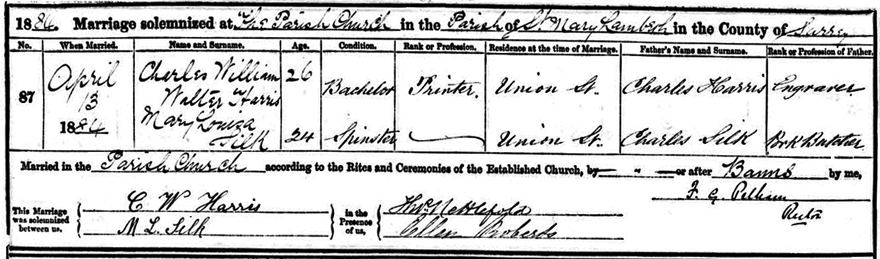 1884 Marriage solemnized at The Parish Church in the Parish of St. Mary Lambeth in the County of Surrey
No. When Married. Name and Surname. Age. Condition. Rank or Profession. Residence at the time of Marriage. Father's Name and Surname. Rank or Profession of Father.
87 April 13 1884 Charles William Walter Harris 26 Bachelor Printer. Union St. Charles Harris Engraver
Mary Louiza Silk 24 Spinster Union St. Charles Silk Butcher
Married in the Parish Church according to the Rites and Ceremonies of the Established Church, by or after Banns by me,
F. G. Pelham
Rector
This Marriage was solemnized between us, C W Harris in the Presence of us, Thos Nettlefold
M L Silk Ellen Roberts